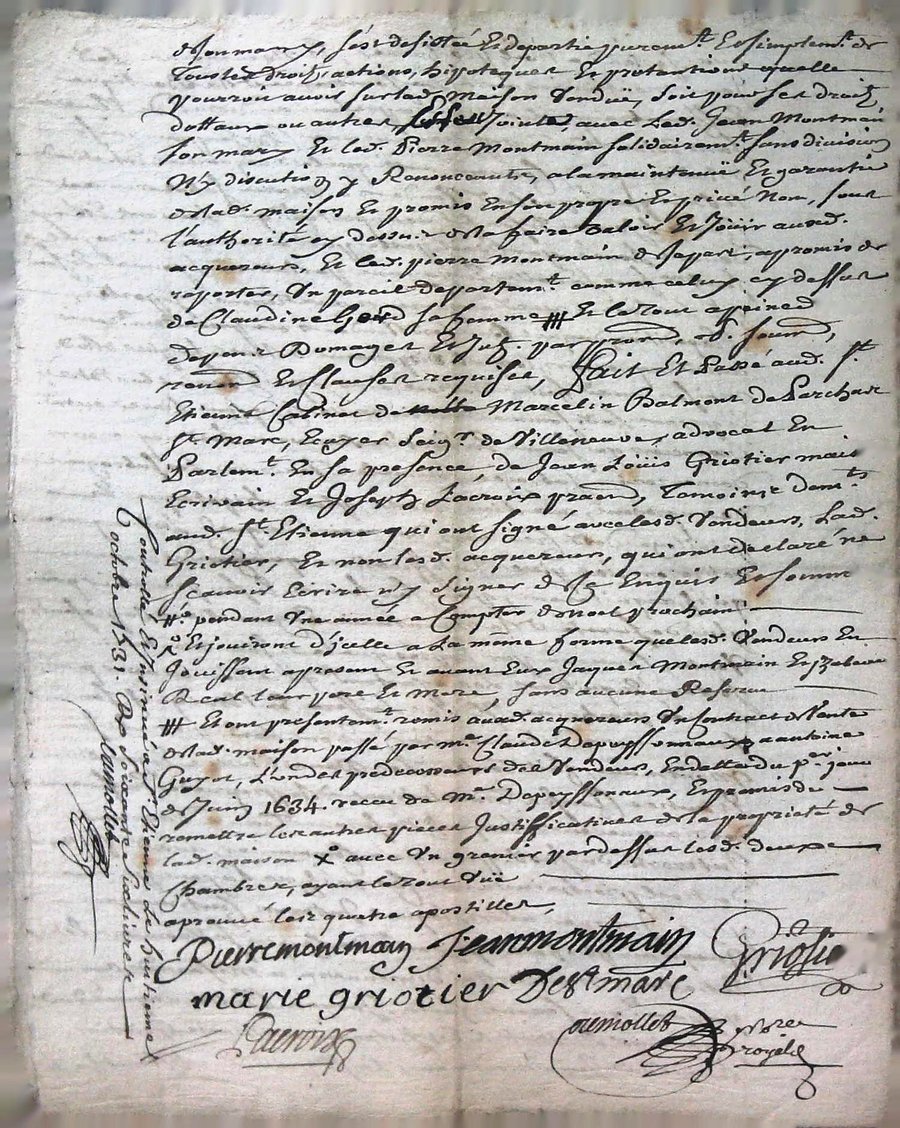 de son mary, s'est desistée Et departie purem.t Et simplem.t de
Tous les droitz, actions, hipoteques Et pretantions quelle
pourroit avoir sur lad. maison Vendue, soit pour ses droitz
dottaux ou autres, Jointe, avec Led. Jean Montmain
son mary Et led. Pierre Montmain solidairem.t sans division
N'y discution y Renonceants, a la maintenüe Et garantie
de lad. maison Et promis En son propre Et privé Nom, sous
l'authorité cy dessus de la faire Valoir Et Joüir ausd.
acquereurs, Et led. pierre Montmain de sa part, a promis de
raporter, Un pareil departem.t comme celuy cy dessus
de Claudine sa femme ⧻ Et le tout a peine de
depens Domages Et
renon Et Clauses requises, Fait Et Passé aud. S.t
Etienne Cabinet de Marcelin Balmont de
S.t Marc, Ecuyer Seig.r de Villeneuve, advocat En
Parlem.t En sa presence, de Jean Loüis Griotier mais
Ecrivain Et Joseph Lacroix Temoins
aud. S.t Etienne qui ont signé avec lesd. Vendeurs, Lad.
Griotier, Et non lesd. acquereurs, qui ont declaré ne
Scavoir Ecrire n'y Signer de Ce Enquis Et sommé
pendant Une année a Compter de noel prochain
Et joüiront d'jcelle a La même forme que lesd. Vendeurs En
Joüissent apresent Et avant Eux Jaques Montmain Et Izabeau
Leur pere Et Mere, sans aucune Reserve
⧻ Et ont presentem.t remis ausd. acquereurs Un Contract de Vente
de lad. maison passé par m.e Claude a antoine
Guyot, L'un des predecesseurs des Vendeurs, En datte du p.er jour
de Juin 1634. receu de M.e Et promis de
remettre les autres pieces Justifficatives de la proprieté de
lad. maison X avec Un grenier par dessus lesd. deux
Chambres, ayant le tout Vüe
aprouvé les quatre apostilles,
Pierre montmain Jean montmain Griotier
marie griotier De St marc
Lacroix
Not.re
royal
Controllé Et Insinué a S.t Etienne Le huitieme
octobre 1731. Soixante Six livres